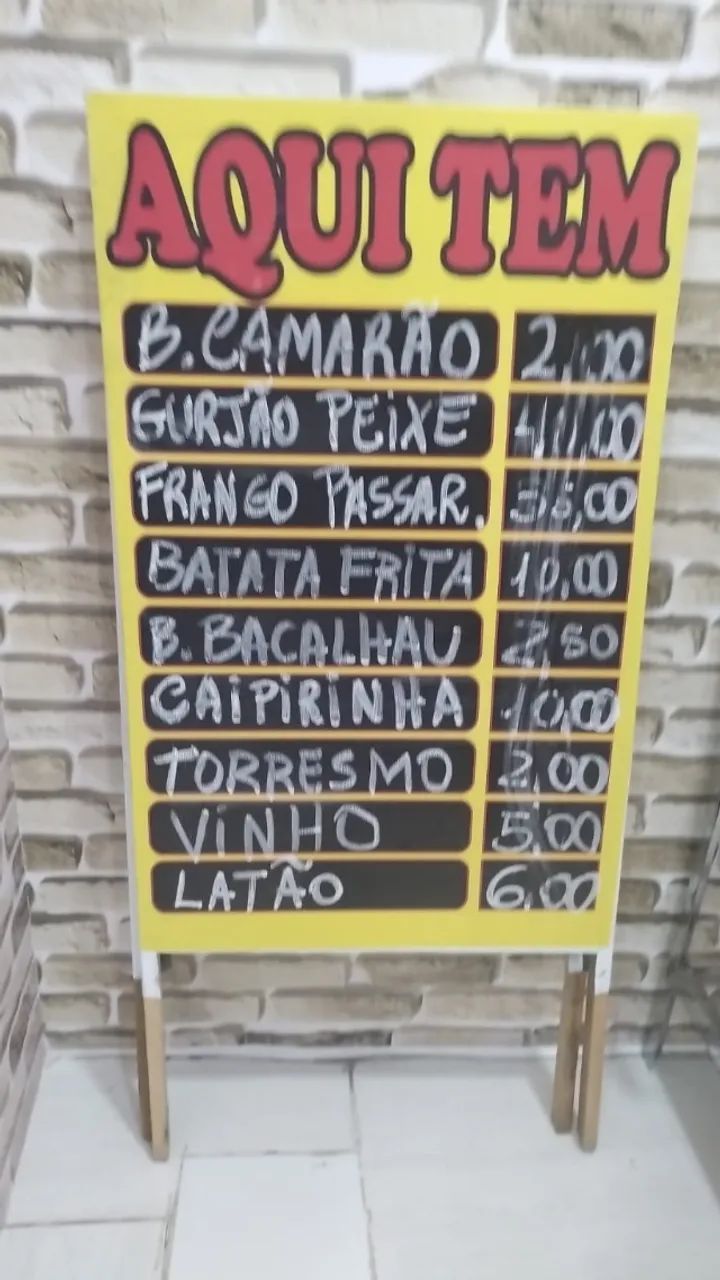 AQUI TEM
B. CAMARÃO 2,00
GURJÃO PEIXE
FRANGO PASSAR.
BATATA FRITA 10,00
B. BACALHAU 2,50
CAIPIRINHA 10,00
TORRESMO 2,00
VINHO 5,00
LATÃO 6,00